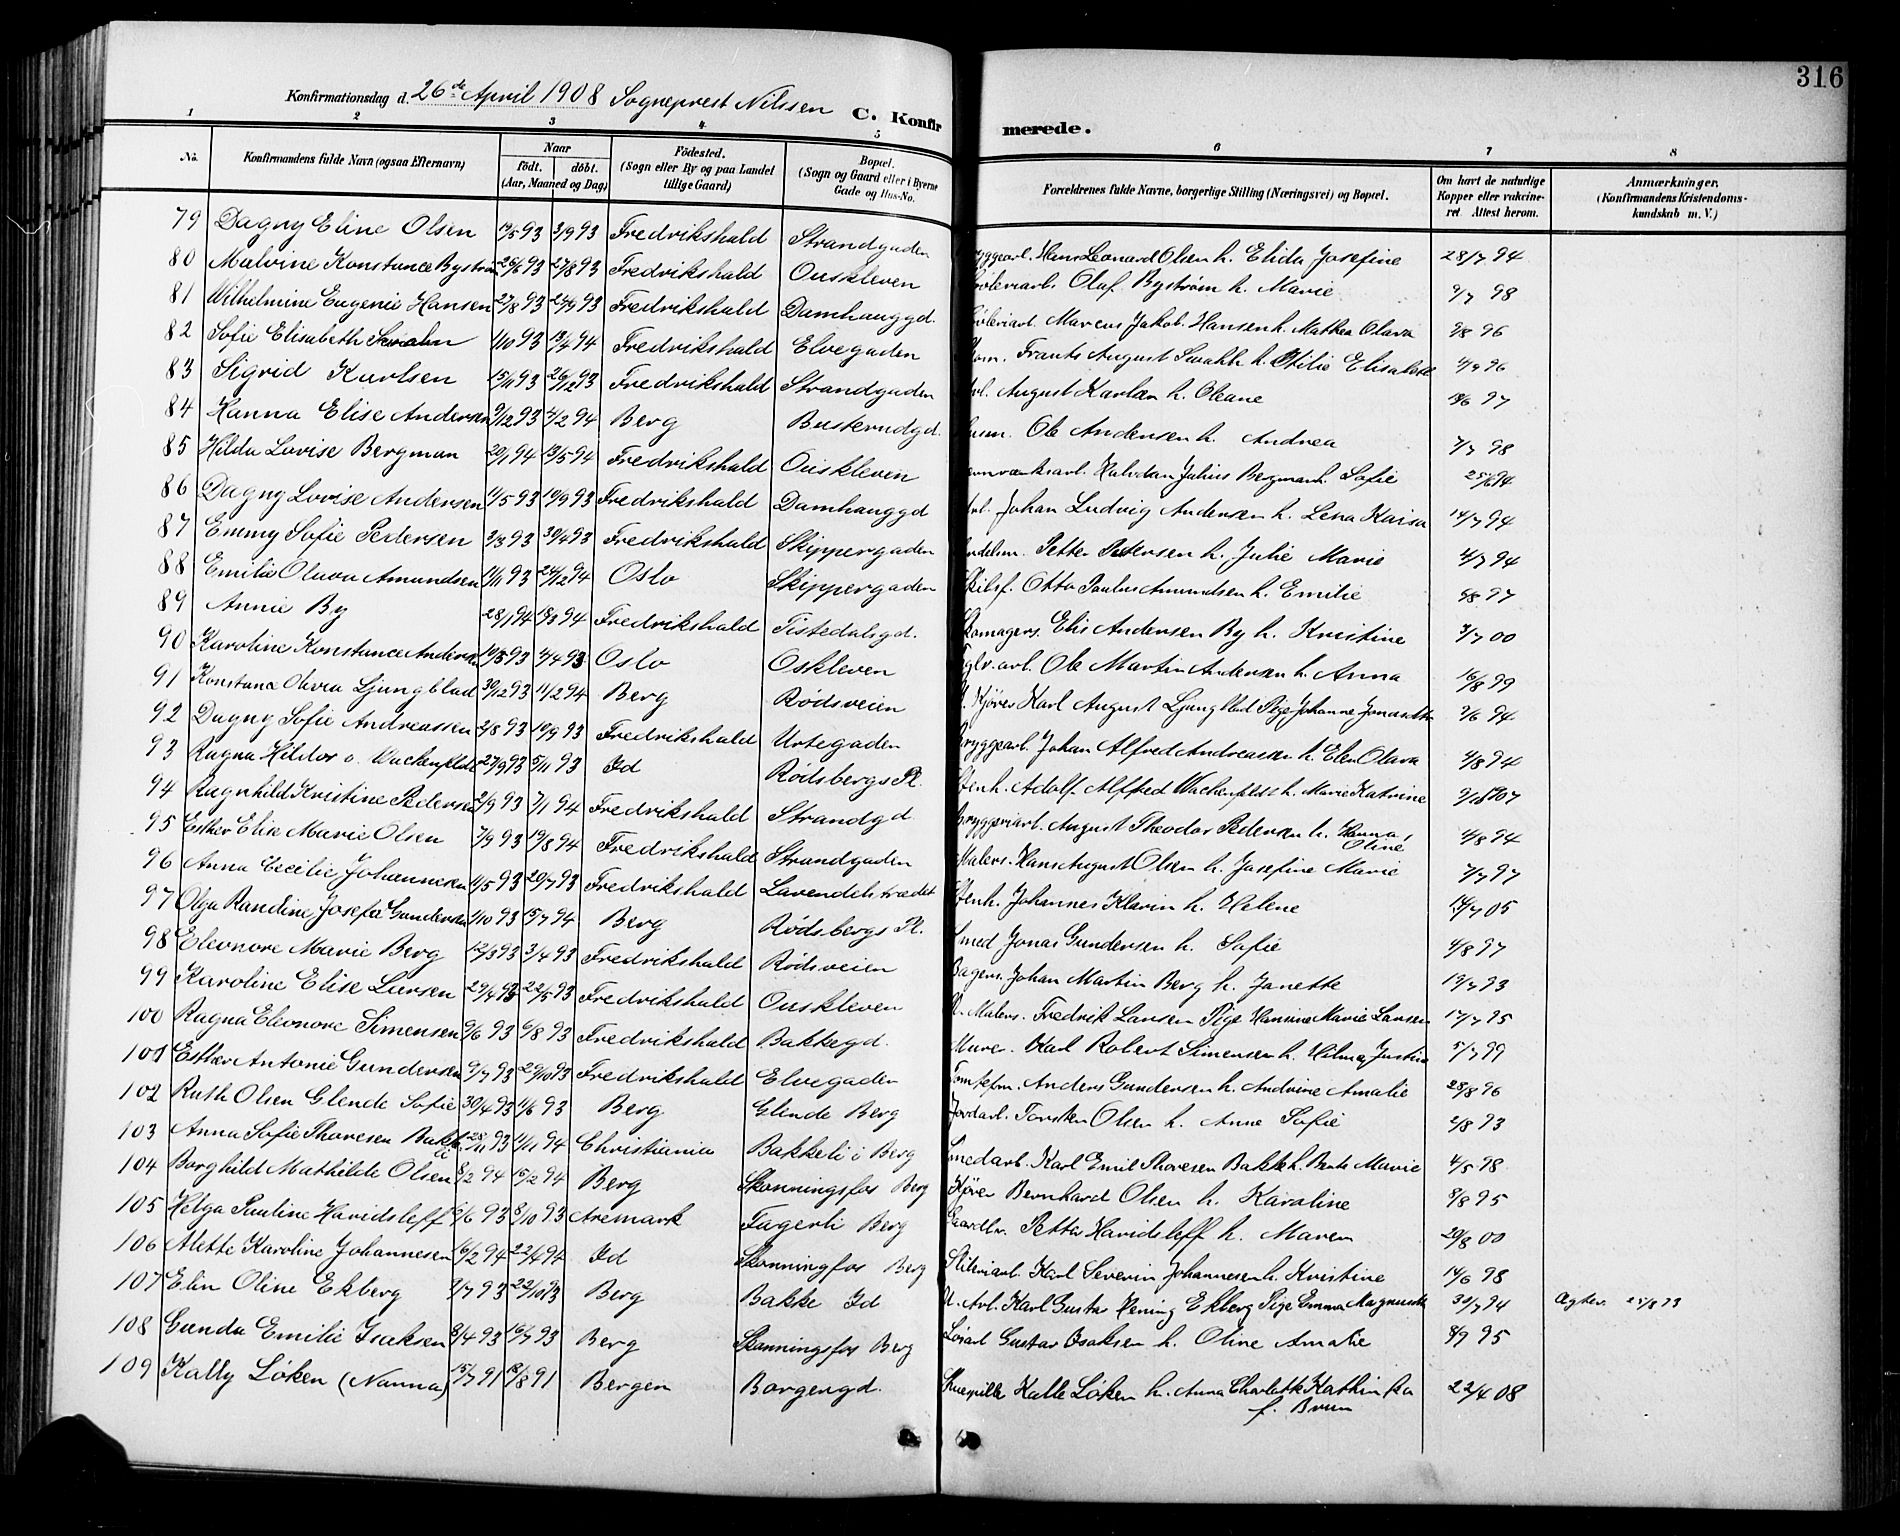 316
Konfirmationsdag d. 26de April 1908 Sogneprest Nilssen C. Konfir merede.
1 2 3 4 5 6 7 8
No. Konfirmandens fulde Navn (ogsaa Efternavn) Naar født. døbt. (Aar, Maaned og Dag) Fødested. (Sogn eller By og paa Landet tillige Gaard) Bopæl. (Sogn og Gaard eller i Byerne Gade og Hus-No. Forældrenes fulde Navne, borgerlige Stilling (Næringsvei) og Bopæl. Om havt de naturlige Kopper eller vakcineret. Attest herom. Anmærkninger. (Konfirmandens Kristendomskundskab m. V.)
79 Dagny Eline Olsen 19/5 93 3/9 93 Fredrikshald Strandgaden Hans Leonard Olsen h. Elida Josefine 28/7 94
80 Malvine Konstance Bystrøm 26/6 93 27/8 93 Fredrikshald Ouskleven Olaf Bystrøm h. Marie 9/7 98
81 Wilhelmine Eugenie Hansen 27/8 93 24/9 93 Fredrikshald Damhauggd. Marcus Jakob Hansen h. Mathea Olava 3/8 96
82 Sofie Elisabeth Svahn 1/10 93 13/4 94 Fredrikshald Elvegaden Frants August Svahn h. Otilie Elisabeth 4/9 96
83 Sigrid Karlsen 15/11 93 26/12 93 Fredrikshald Strandgaden August Karlsen h. Oleane 18/6 97
84 Hanna Elise Andersen 9/12 93 4/2 94 Berg Busterudgd. Ole Andersen h. Andrea 7/7 98
85 Hilda Lovise Bergman 20/1 94 13/5 94 Fredrikshald Ouskleven Halvdan Julius Bergman h. Sofie 25/6 94
86 Dagny Lovise Andersen 11/5 93 10/9 93 Fredrikshald Damhauggd Johan Ludvig Andersen h. Lena Kaisa 14/7 94
87 Emmy Sofie Pedersen 3/3 93 30/4 93 Fredrikshald Skippergaden Petter Petersen h. Julie Marie 4/7 94
88 Emilie Olava Amundsen 11/11 93 24/12 94 Oslo Skippergaden Skibsf. Otto Paulus Amundsen h. Emilie 5/8 97
89 Annie By 28/1 94 18/3 94 Fredrikshald Tistedalsgd. Skomagers. Elis Andersen By h. Kristine 3/7 00
90 Karoline Konstance Andersen 10/3 93 4/4 93 Oslo Oskleven Ole Martin Andersen h. Anna 16/8 99
91 Konstance Olava Ljungblad 30/12 93 11/2 94 Berg Rødsveien Kjører Karl August Ljungblad Pige Johanne 2/6 94
92 Dagny Sofie Andreassen 2/8 93 10/9 93 Fredrikshald Urtegaden Bryggearl. Johan Alfred Andreassen h. Elen Olava 4/8 94
93 Ragna Hildor o. Wachenfeldt 27/9 93 5/11 93 Id Rødsbergs Pl. Stenh. Adolf Alfred Wachenfeldt h. Marie Katrine
94 Ragnhild Kristine Pedersen 2/9 93 7/1 94 Fredrikshald Strandgd. August Theodor Pedersen h. Hanna Oline 4/8 94
95 Esther Elise Marie Olsen 7/9 93 19/8 94 Fredrikshald Strandgaden Malers. Hans August Olsen h. Josefine Marie 7/7 97
96 Anna Cecilie Johannesen 11/5 93 20/7 93 Fredrikshald Lavendelstrædet Stenh. Johannes Klarin h. Helene 14/7 05
97 Olga Randine Josefie Gundersen 1/10 93 15/7 94 Berg Rødsbergs Pl. Smed Jonas Gundersen h. Sofie 4/8 97
98 Eleonore Marie Berg 12/3 93 3/4 93 Fredrikshald Rødsveien Bagers. Johan Martin Berg h. Janette 19/7 93
99 Karoline Elise Larsen 29/4 93 22/5 93 Fredrikshald Ouskleven Malers. Fredrik Larsen Pige Hansine Marie Larsen 17/7 95
100 Ragna Eleonore Simensen 9/6 93 6/8 93 Fredrikshald Bakkegd. Murer. Karl Robert Simensen h. Hilma Justine 5/7 99
101 Esther Antonie Gundersen 9/7 93 29/10 93 Fredrikshald Elvegaden Anders Gundersen h. Andrine Amalie 28/8 96
102 Ruth Olsen Glende Sofie 30/4 93 11/6 93 Berg Glende Berg Jordarl. Torsten Olsen h. Anne Sofie 2/8 93
103 Anna Sofie Thoresen Bakke 28/11 93 11/11 94 Christiania Bakkeli i Berg Smedarb. Karl Emil Thoresen Bakke h. Berte Marie 4/5 98
104 Borghild Mathilde Olsen 8/2 94 15/2 94 Berg Skonningsfos Berg Kjører Bernhard Olsen h. Karoline 8/8 95
105 Helga Pauline Havidsleff 6/6 93 8/10 93 Aremark Fagerli Berg Petter Havidsleff h. Maren 20/8 00
106 Alette Karoline Johannesen 16/2 94 22/4 94 Id Skonningfos Berg Sliberiarl. Karl Severin Johannesen h. Kristine 14/6 98
107 Elin Oline Ekberg 9/7 93 22/10 93 Berg Bakke Id Karl Gustav Hening Ekberg Pige Emma Magnusdtr 30/7 94
108 Gunda Emilie Isaksen 8/4 93 16/7 93 Berg Skonningsfos Berg Gustav Isaksen h. Oline Amalie 8/9 95
109 Kally Løken (Nanna) 15/7 91 18/8 91 Bergen Borgergd. Kalle Løken h. Anna Charlotte Kathinka f. Bruun 22/4 08